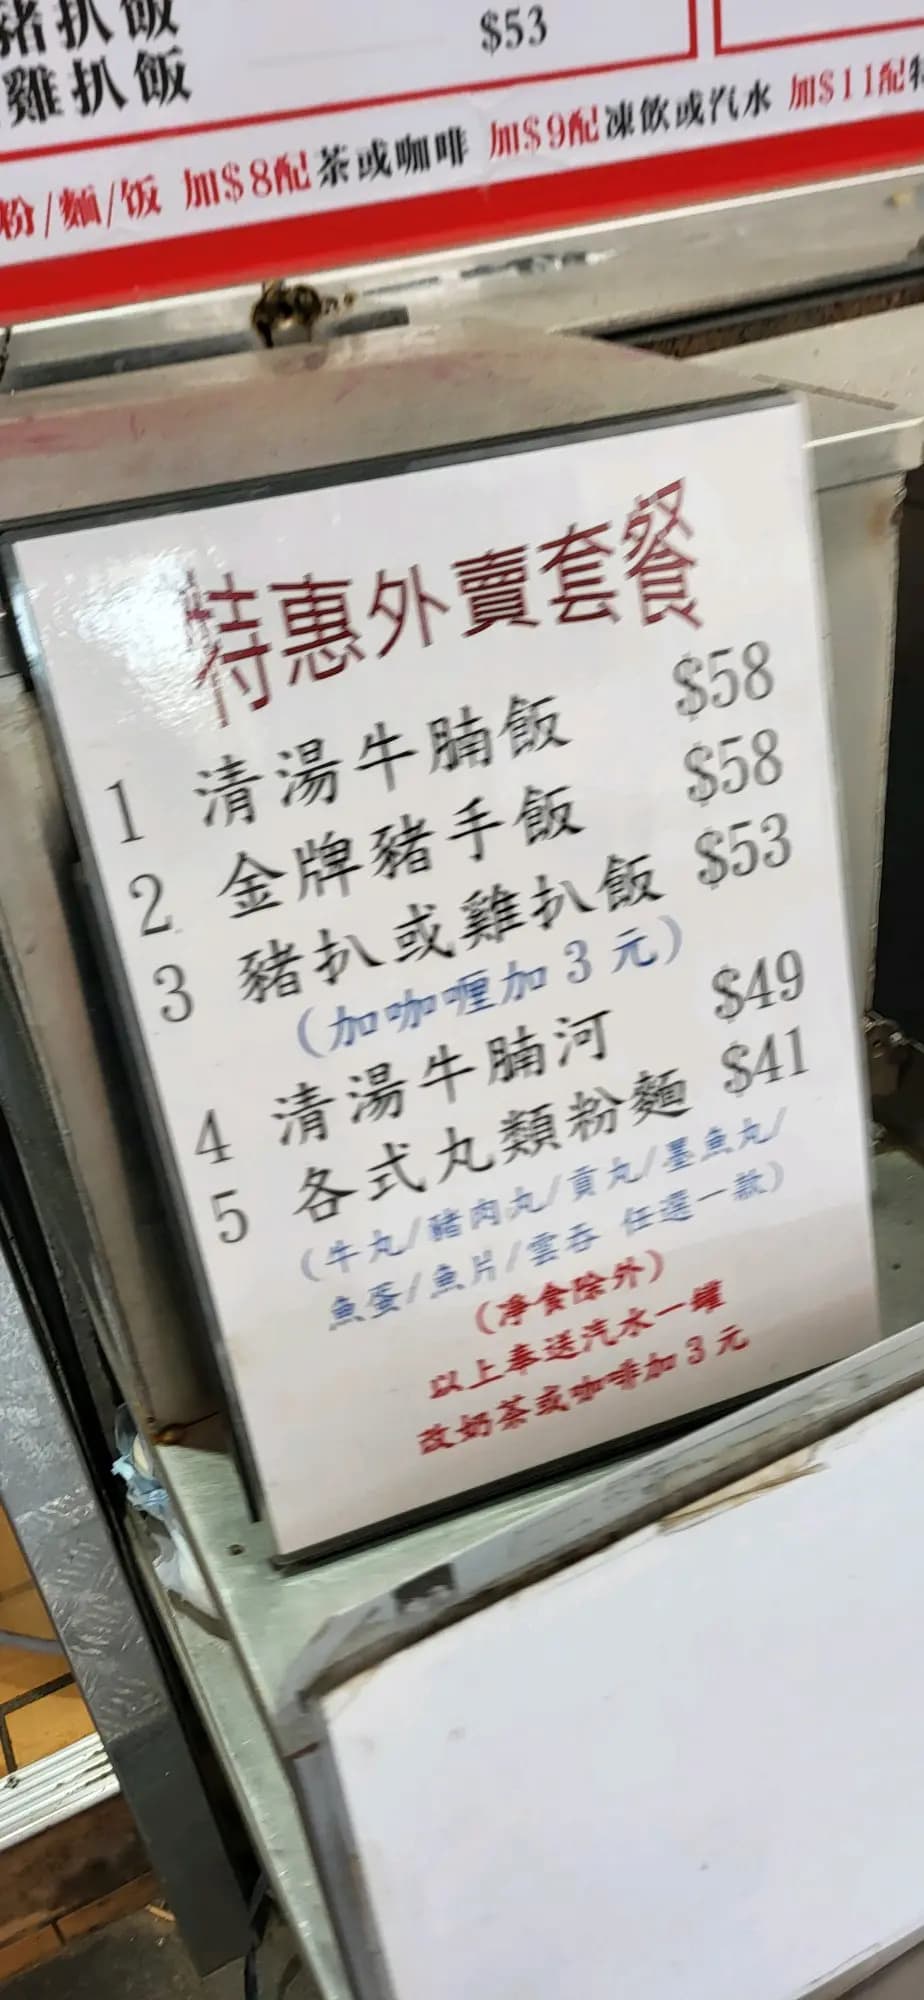 豬扒飯
雞扒飯 $53
粉/麵/饭 加$8配茶或咖啡 加$9配凍飲或汽水 加$11配特
特惠外賣套餐
1 清湯牛腩飯 $58
2 金牌豬手飯 $58
3 豬扒或雞扒飯 $53
(加咖喱加3元)
4 清湯牛腩河 $49
5 各式丸類粉麵 $41
(牛丸/豬肉丸/貢丸/墨魚丸/
魚蛋/魚片/雲吞 任選一款)
(净食除外)
以上奉送汽水一罐
改奶茶或咖啡加3元